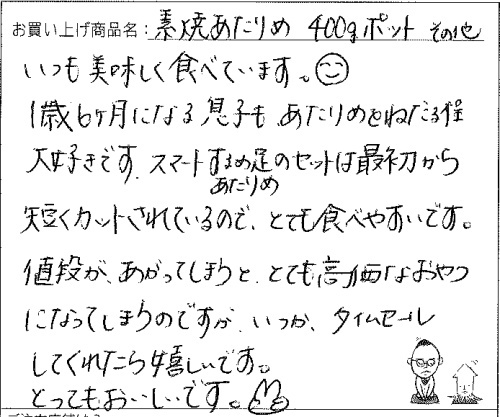 お買い上げ商品名：素焼あたりめ 400gポット その他
いつも美味しく食べています。
1歳6ヶ月になる息子も、あたりめをねだる程
大好きです。スマートするめ足のセットは最初から
あたりめ
短くカットされているので、とても食べやすいです。
値段が、あがってしまうと、とても高価なおやつ
になってしまうのですが、いつか、タイムセール
してくれたら嬉しいです。
とってもおいしいです。